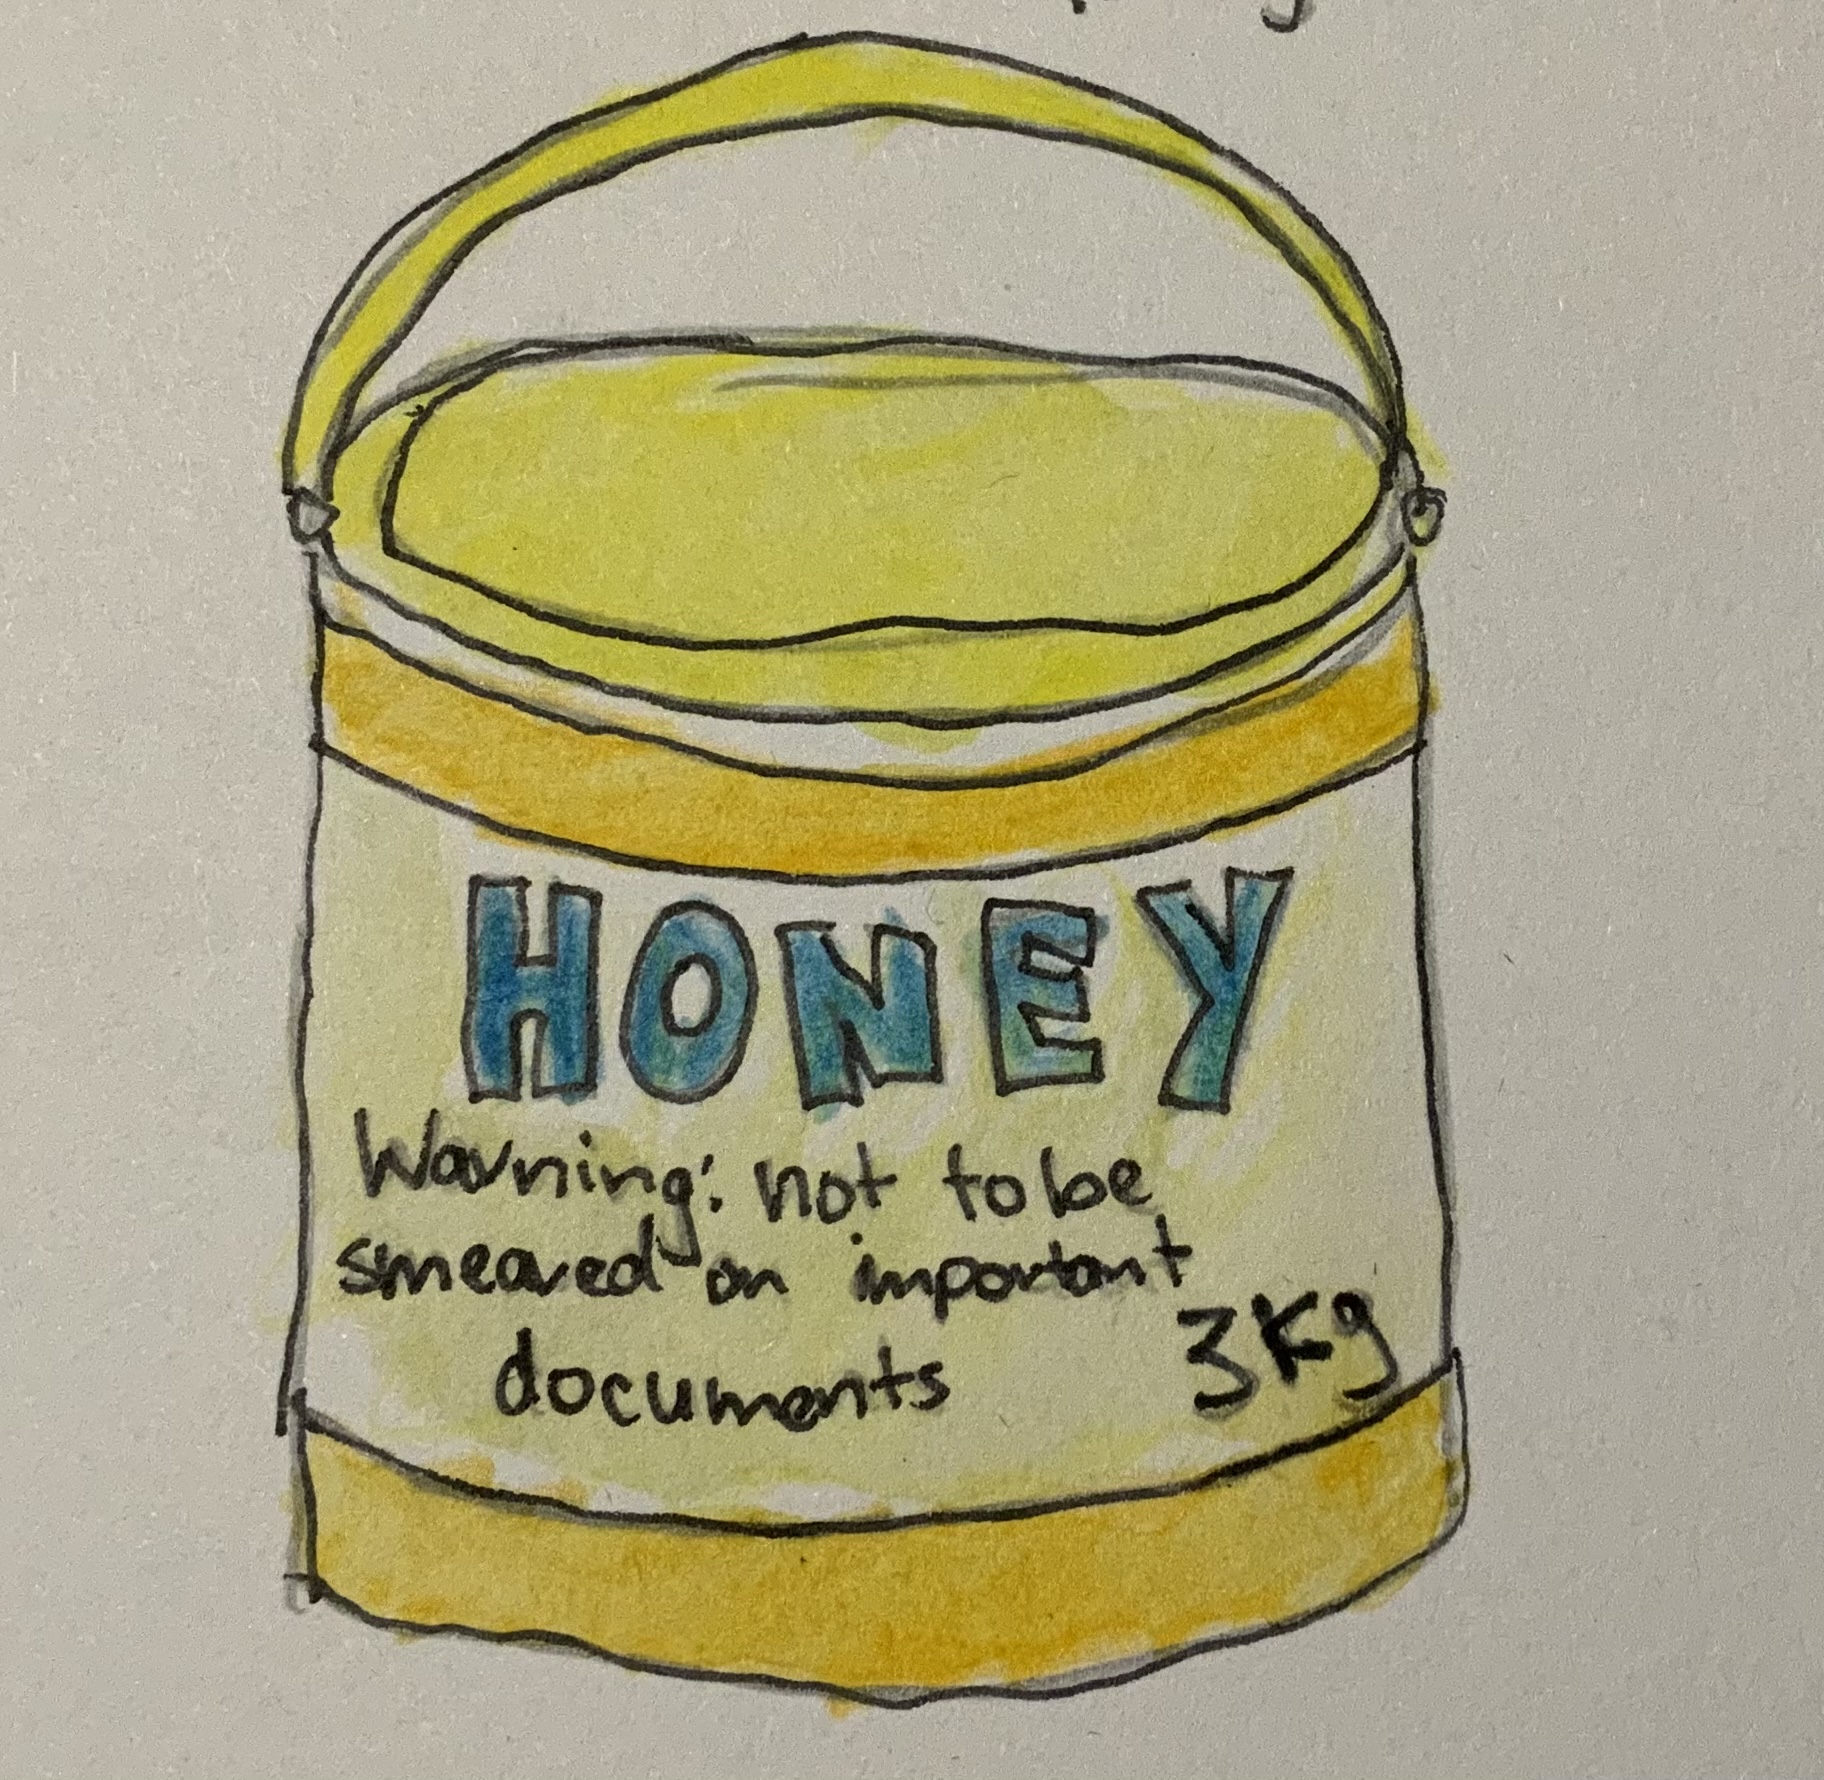 HONEY
Warning: not to be
smeared on important
documents
3Kg